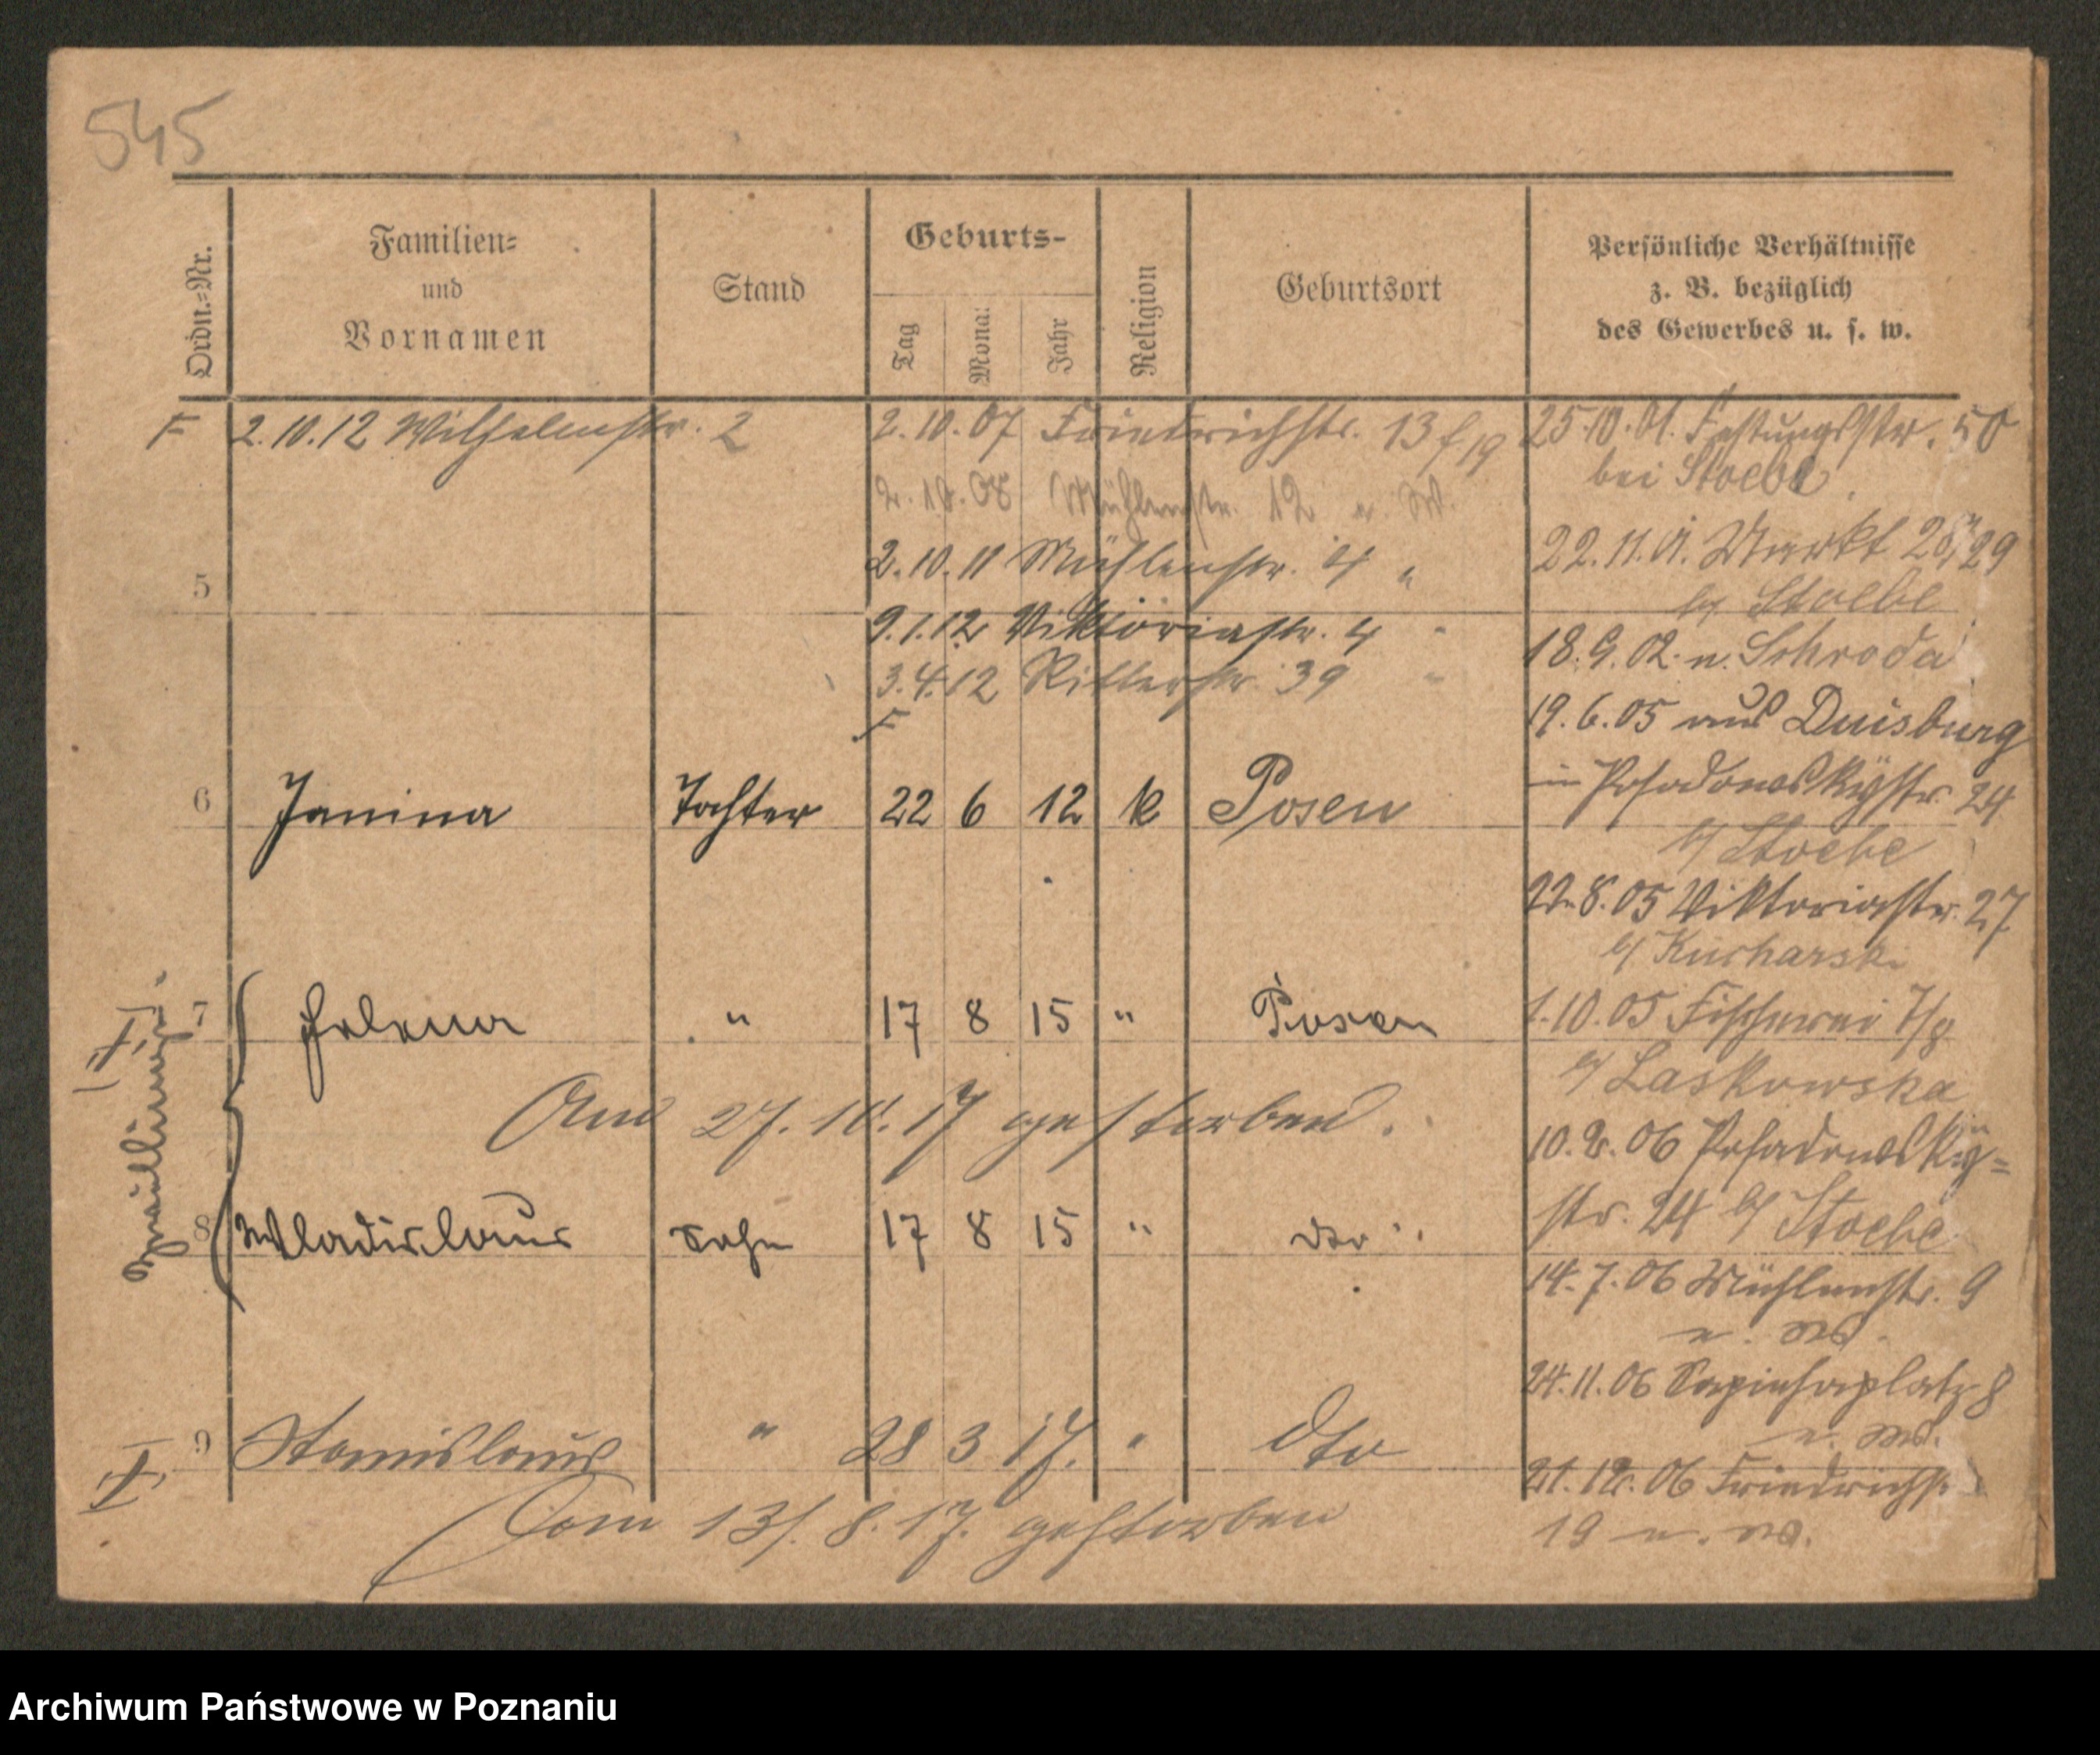 545
Ordn.-Nr.
Familien-
und
Vornamen
Stand
Geburts-
Tag
Monat
Jahr
Religion
Geburtsort
Persönliche Verhältnisse
z. B. bezüglich
des Gewerbes u. s. w.
F 2.10.12 Wilhelmstr. 2
2.10.07 Friedrichstr. 13
2.10.08 Mühlenstr. 12 u. W.
2.10.11 Mühlenstr. 4 "
9.1.12 Viktoriastr. 4 "
3.4.12 Ritterstr. 39 "
F
25.10.01. Festungsstr. 50
bei Stoebe
22.11.01. Markt 28/29
b/ Stoebe
18.9.02. n. Schroda
19.6.05 aus Duisburg
in Posadowskystr. 24
b/ Stoebe
22.8.05 Viktoriastr. 27
b/ Kucharski
1.10.05 Fischerei 7/8
b/ Laskowska
10.2.06 Posadowsky-
str. 24 b/ Stoebe
14.7.06 Mühlenstr. 9
u. W.
24.11.06 Sapiehaplatz 8
u. W.
21.12.06 Friedrichstr.
19 u. W.
5
6 Janina Tochter 22 6 12 k Posen
Zwillinge
7 Helena " 17 8 15 " Posen
Am 27.10.17 gestorben.
8 Wladislaus Sohn 17 8 15 " dto
9 Stanislaus " 28 3 17. " dto
Am 13/.8.17. gestorben
Archiwum Państwowe w Poznaniu